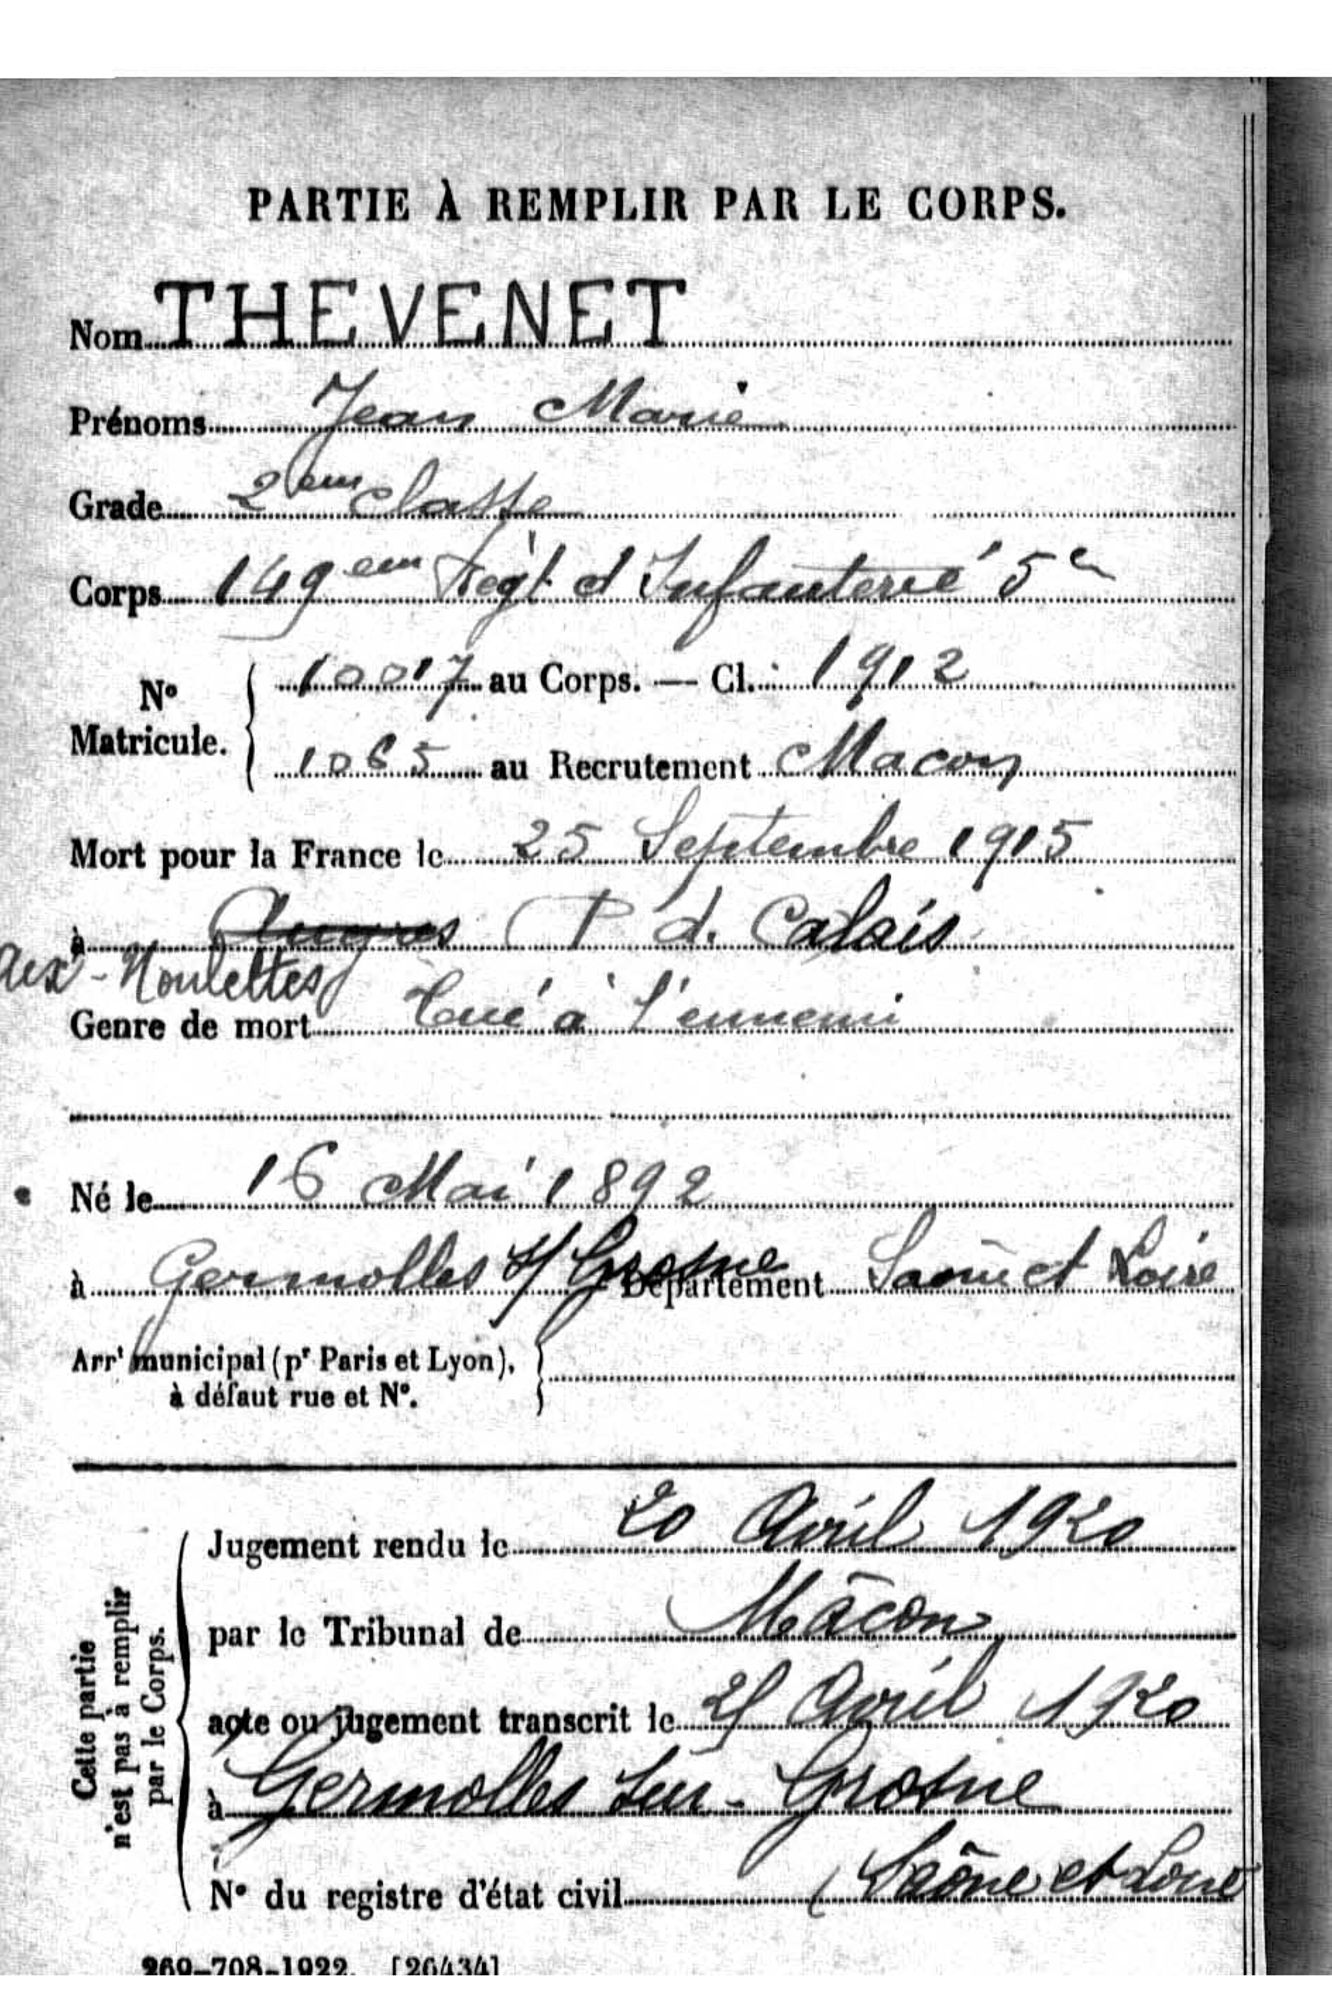 PARTIE À REMPLIR PAR LE CORPS.
Nom THEVENET
Prénoms Jean Marie
Grade 2em classe
Corps 149em Régt d Infanterie 5e
N° Matricule. 10017 au Corps. — Cl. 1912
1065 au Recrutement Macon
Mort pour la France le 25 Septembre 1915
à Angres P d. Calais
Aix-Noulettes
Genre de mort Tué à l'ennemi
Né le 16 Mai 1892
à Germolles s/ Grosne Département Saône et Loire
Arrt municipal (pr Paris et Lyon),
à défaut rue et N°.
Cette partie
n'est pas à remplir
par le Corps.
Jugement rendu le 20 Avril 1920
par le Tribunal de Mâcon
acte ou jugement transcrit le Avril 1920
à Germolles sur-Grosne
N° du registre d'état civil (Saône et Loire
269-708-1922. [26434]